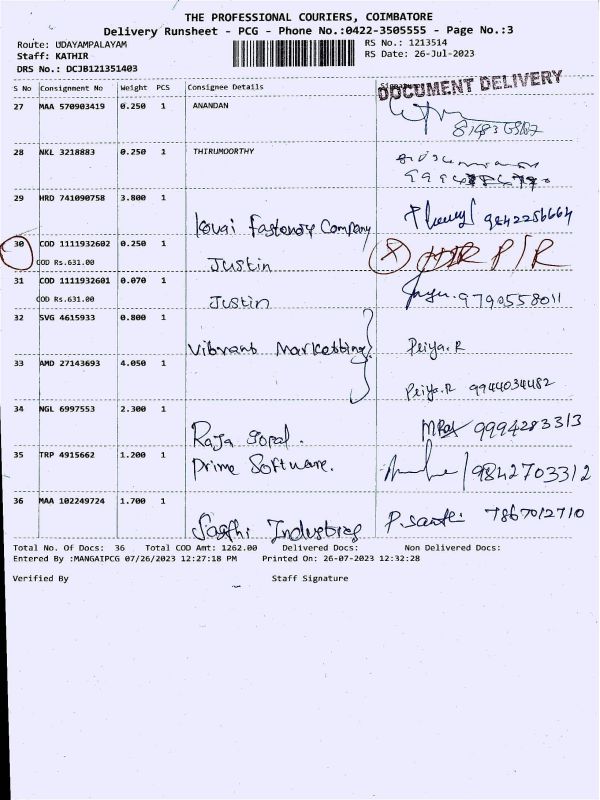 THE PROFESSIONAL COURIERS, COIMBATORE
Delivery Runsheet - PCG - Phone No.:0422-3505555 - Page No.:3
Route: UDAYAMPALAYAM
RS No.: 1213514
Staff: KATHIR
RS Date: 26-Jul-2023
DRS No.: DCJB121351403
S No Consignment No Weight PCS Consignee Details
DOCUMENT DELIVERY
27 MAA 570903419 0.250 1 ANANDAN
28 NKL 3218883 0.250 1 THIRUMOORTHY
29 HRD 741090758 3.800 1 Kovai Fasteners Company 9842256664
30 COD 1111932602 0.250 1 Justin P/R
COD Rs.631.00
31 COD 1111932601 0.070 1 Justin 9790558011
COD Rs.631.00
32 SVG 4615933 0.800 1 Vibrant Marketting Priya.R
33 AMD 27143693 4.050 1 Priya.R 9944034482
34 NGL 6997553 2.300 1 Raja Gopal. 9994283313
35 TRP 4915662 1.200 1 Prime Software. 9842703312
36 MAA 102249724 1.700 1 Sagthi Industries P.santhi 7867012710
Total No. Of Docs: 36 Total COD Amt: 1262.00 Delivered Docs: Non Delivered Docs:
Entered By :MANGAIPCG 07/26/2023 12:27:18 PM Printed On: 26-07-2023 12:32:28
Verified By Staff Signature